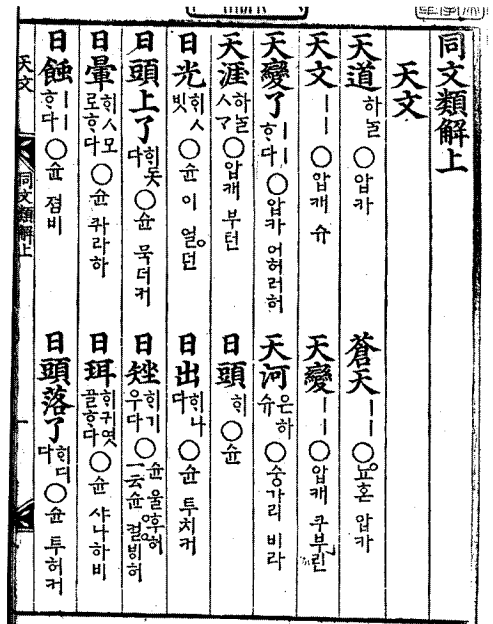 同文類解上
天文
天道 하ᄂᆞᆯ ○압카
蒼天 丨丨 ○뇨혼 압카
天文 丨丨 ○압캐 슈
天變 丨丨 ○압캐 쿠부린
天變了 丨丨ᄒᆞ다 ○압카 어허러허
天河 은하슈 ○숭가리 비라
天涯 하ᄂᆞᆯᄉᆞᄀᆞ ○압캐 부턴
日頭 ᄒᆡ ○슌
日光 ᄒᆡㅅ빗 ○슌 이 얼던
日出 ᄒᆡ나다 ○슌 투치커
日頭上了 ᄒᆡ돗다 ○슌 묵더커
日矬 ᄒᆡ기우다 ○슌 울후허 一云슌 컬빙허
日暈 ᄒᆡㅅ모로ᄒᆞ다 ○슌 콰라하
日珥 ᄒᆡ귀엿골ᄒᆞ다 ○슌 샤나하비
日蝕 丨丨ᄒᆞ다 ○슌 졈비
日頭落了 ᄒᆡ디다 ○슌 투허커
天文
同文類解上
一